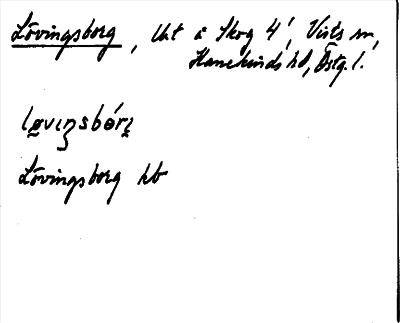 Lövingsborg, Uht å Skog 4', Vists sn,
Hanekinds hd, Östg. l.
Lövingsborg hb